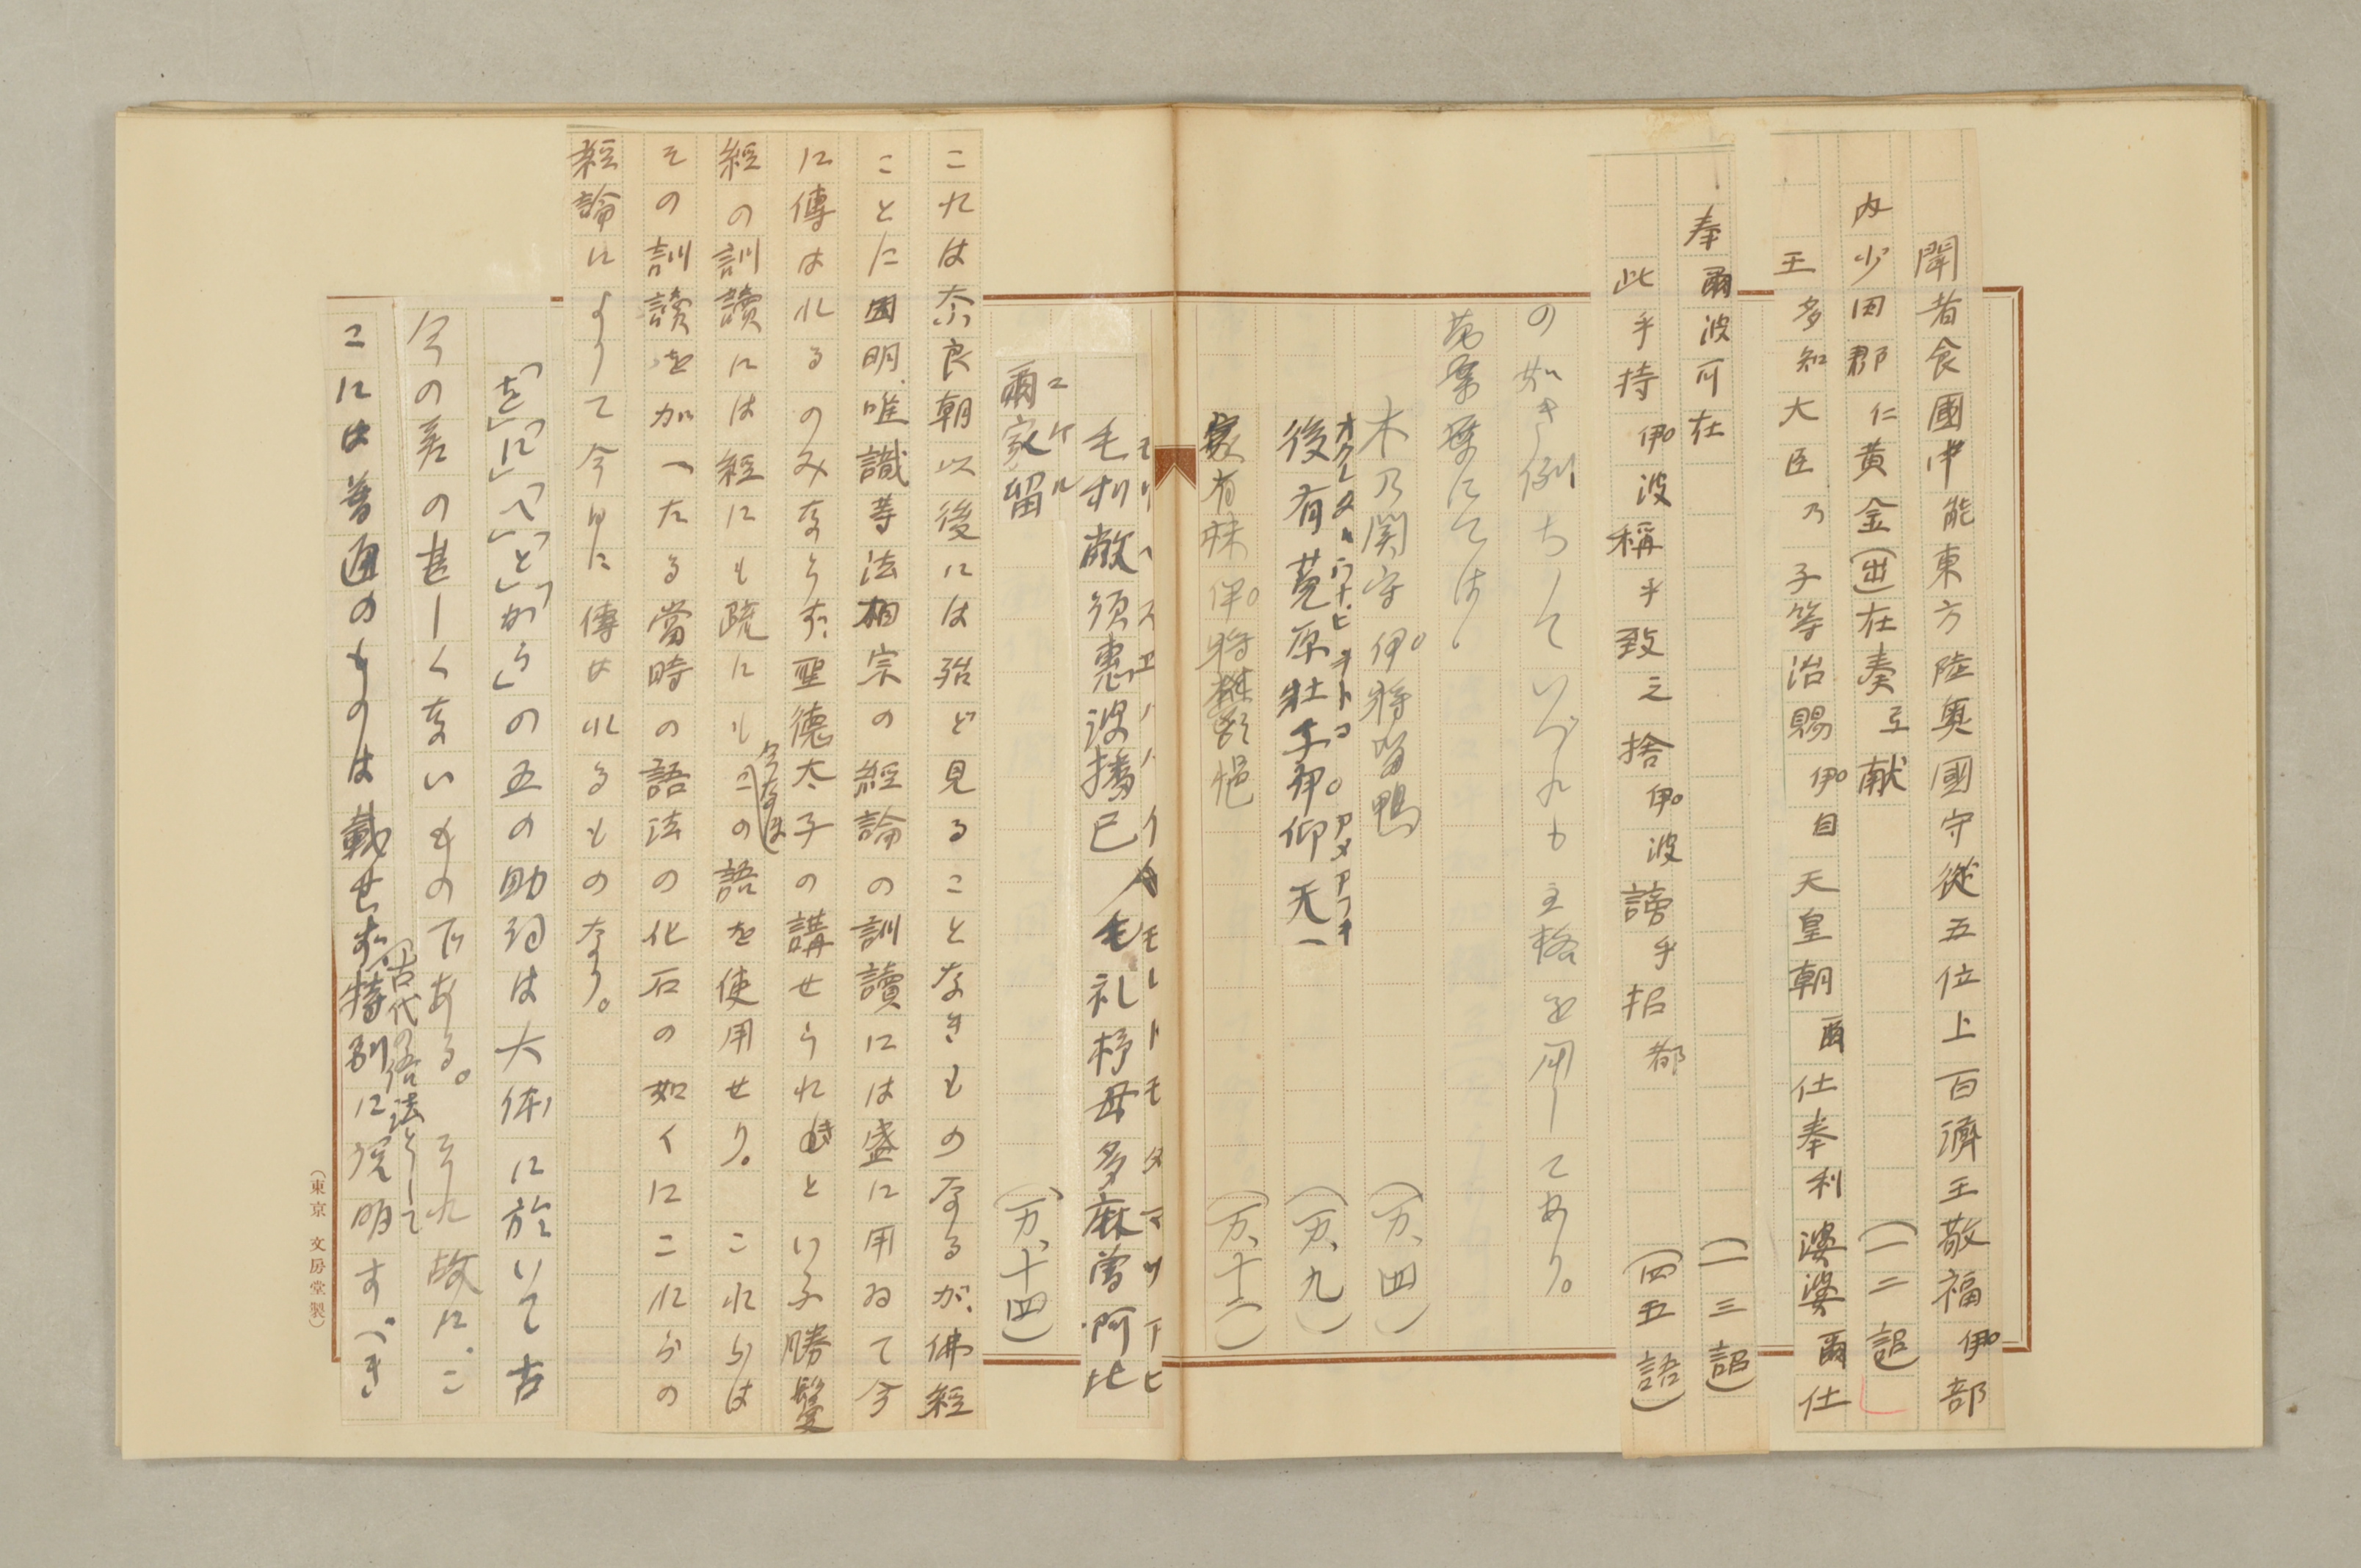 聞者食國中能東方陸奥國守從五位上百濟王敬福伊部
内少田郡仁黄金(出)在奏弖献
(一三詔)
王多知大臣乃子等治賜伊自天皇朝爾仕奉利婆婆爾仕
奉爾波可在
(一三詔)
此乎持伊波稱乎致之捨伊波謗乎招都
(四五詔)
の如き例ちしていづれも主格を用してあり。
萬葉集にては、
木乃関守伊将留鴨
(万、四)
オクレタルウナヒヲトコ アメアフギ
後有菟原壮子伊仰天一
(万、九)
家有妹伊将欝悒
(万、十二)
毛利敝須惠波播已
毛礼杼母多麻曽阿比
ニケル
爾家留
(万、十四)
これは奈良朝以後には殆ど見ることなきものなるが、佛經
ことに因明、唯識等法相宗の經論の訓讀には盛に用ゐて今
に傳はれるのみならず、聖徳太子の講せられきといふ勝鬘
經の訓讀には經にも疏にも今なほこの語を使用せり。これらは
その訓讀を加へたる當時の語法の化石の如くにこれらの
經論によりて今日に傳はれるものなり。
「を」「に」「へ」「と」「から」の五の助詞は大体に於いて古
今の差の甚しくないものである。それ故に、こ
こには普通のものは載せず、
古代語法として
特別に説明すべき
(東京 文房堂製)